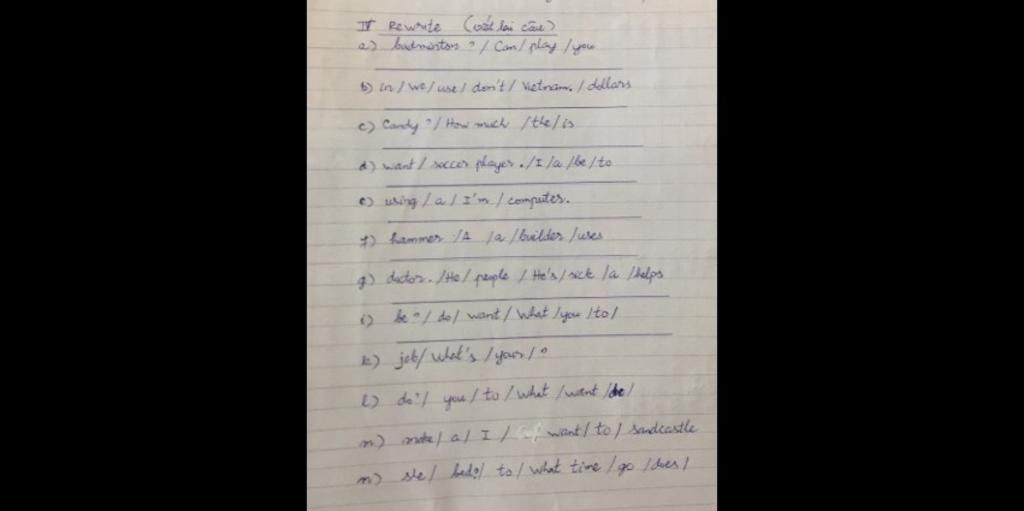 IV Rewrite (viết lại câu)
a) badminton ? / Can / play / you
b) in / we / use / don't / Vietnam. / dollars
c) Candy ? / How much / the / is
d) want / soccer player . / I / a / be / to
e) using / a / I'm / computer.
f) hammer / A / a / builder / uses
g) doctor. / He / people / He's / sick / a / helps
i) be ? / do / want / What / you / to /
k) job / What's / your / ?
l) do? / you / to / What / want /
m) make / a / I / want / to / sandcastle
n) she / bed? / to / What time / go / does /